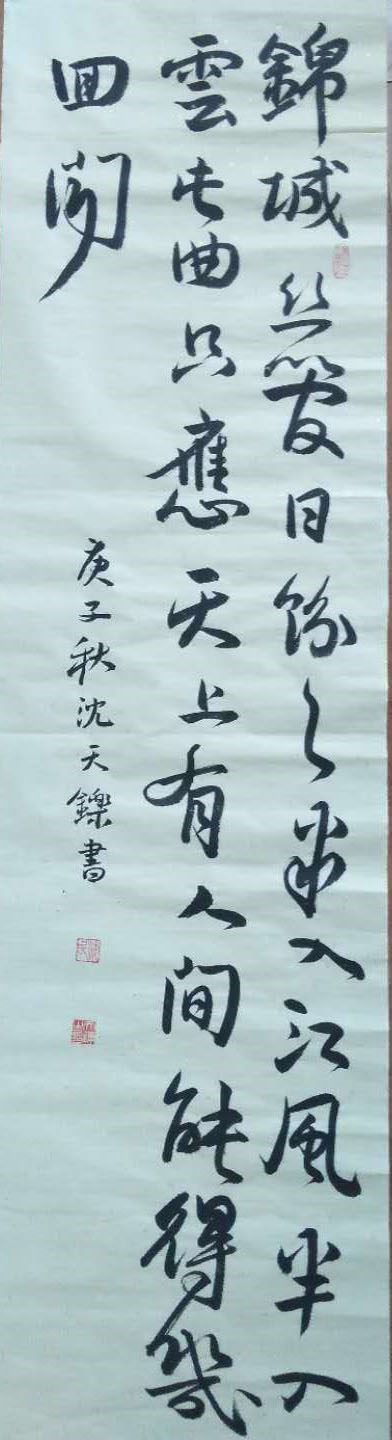 錦城絲管日紛々半入江風半入
雲此曲只應天上有人間能得幾
回聞
庚子秋沈天鑠書